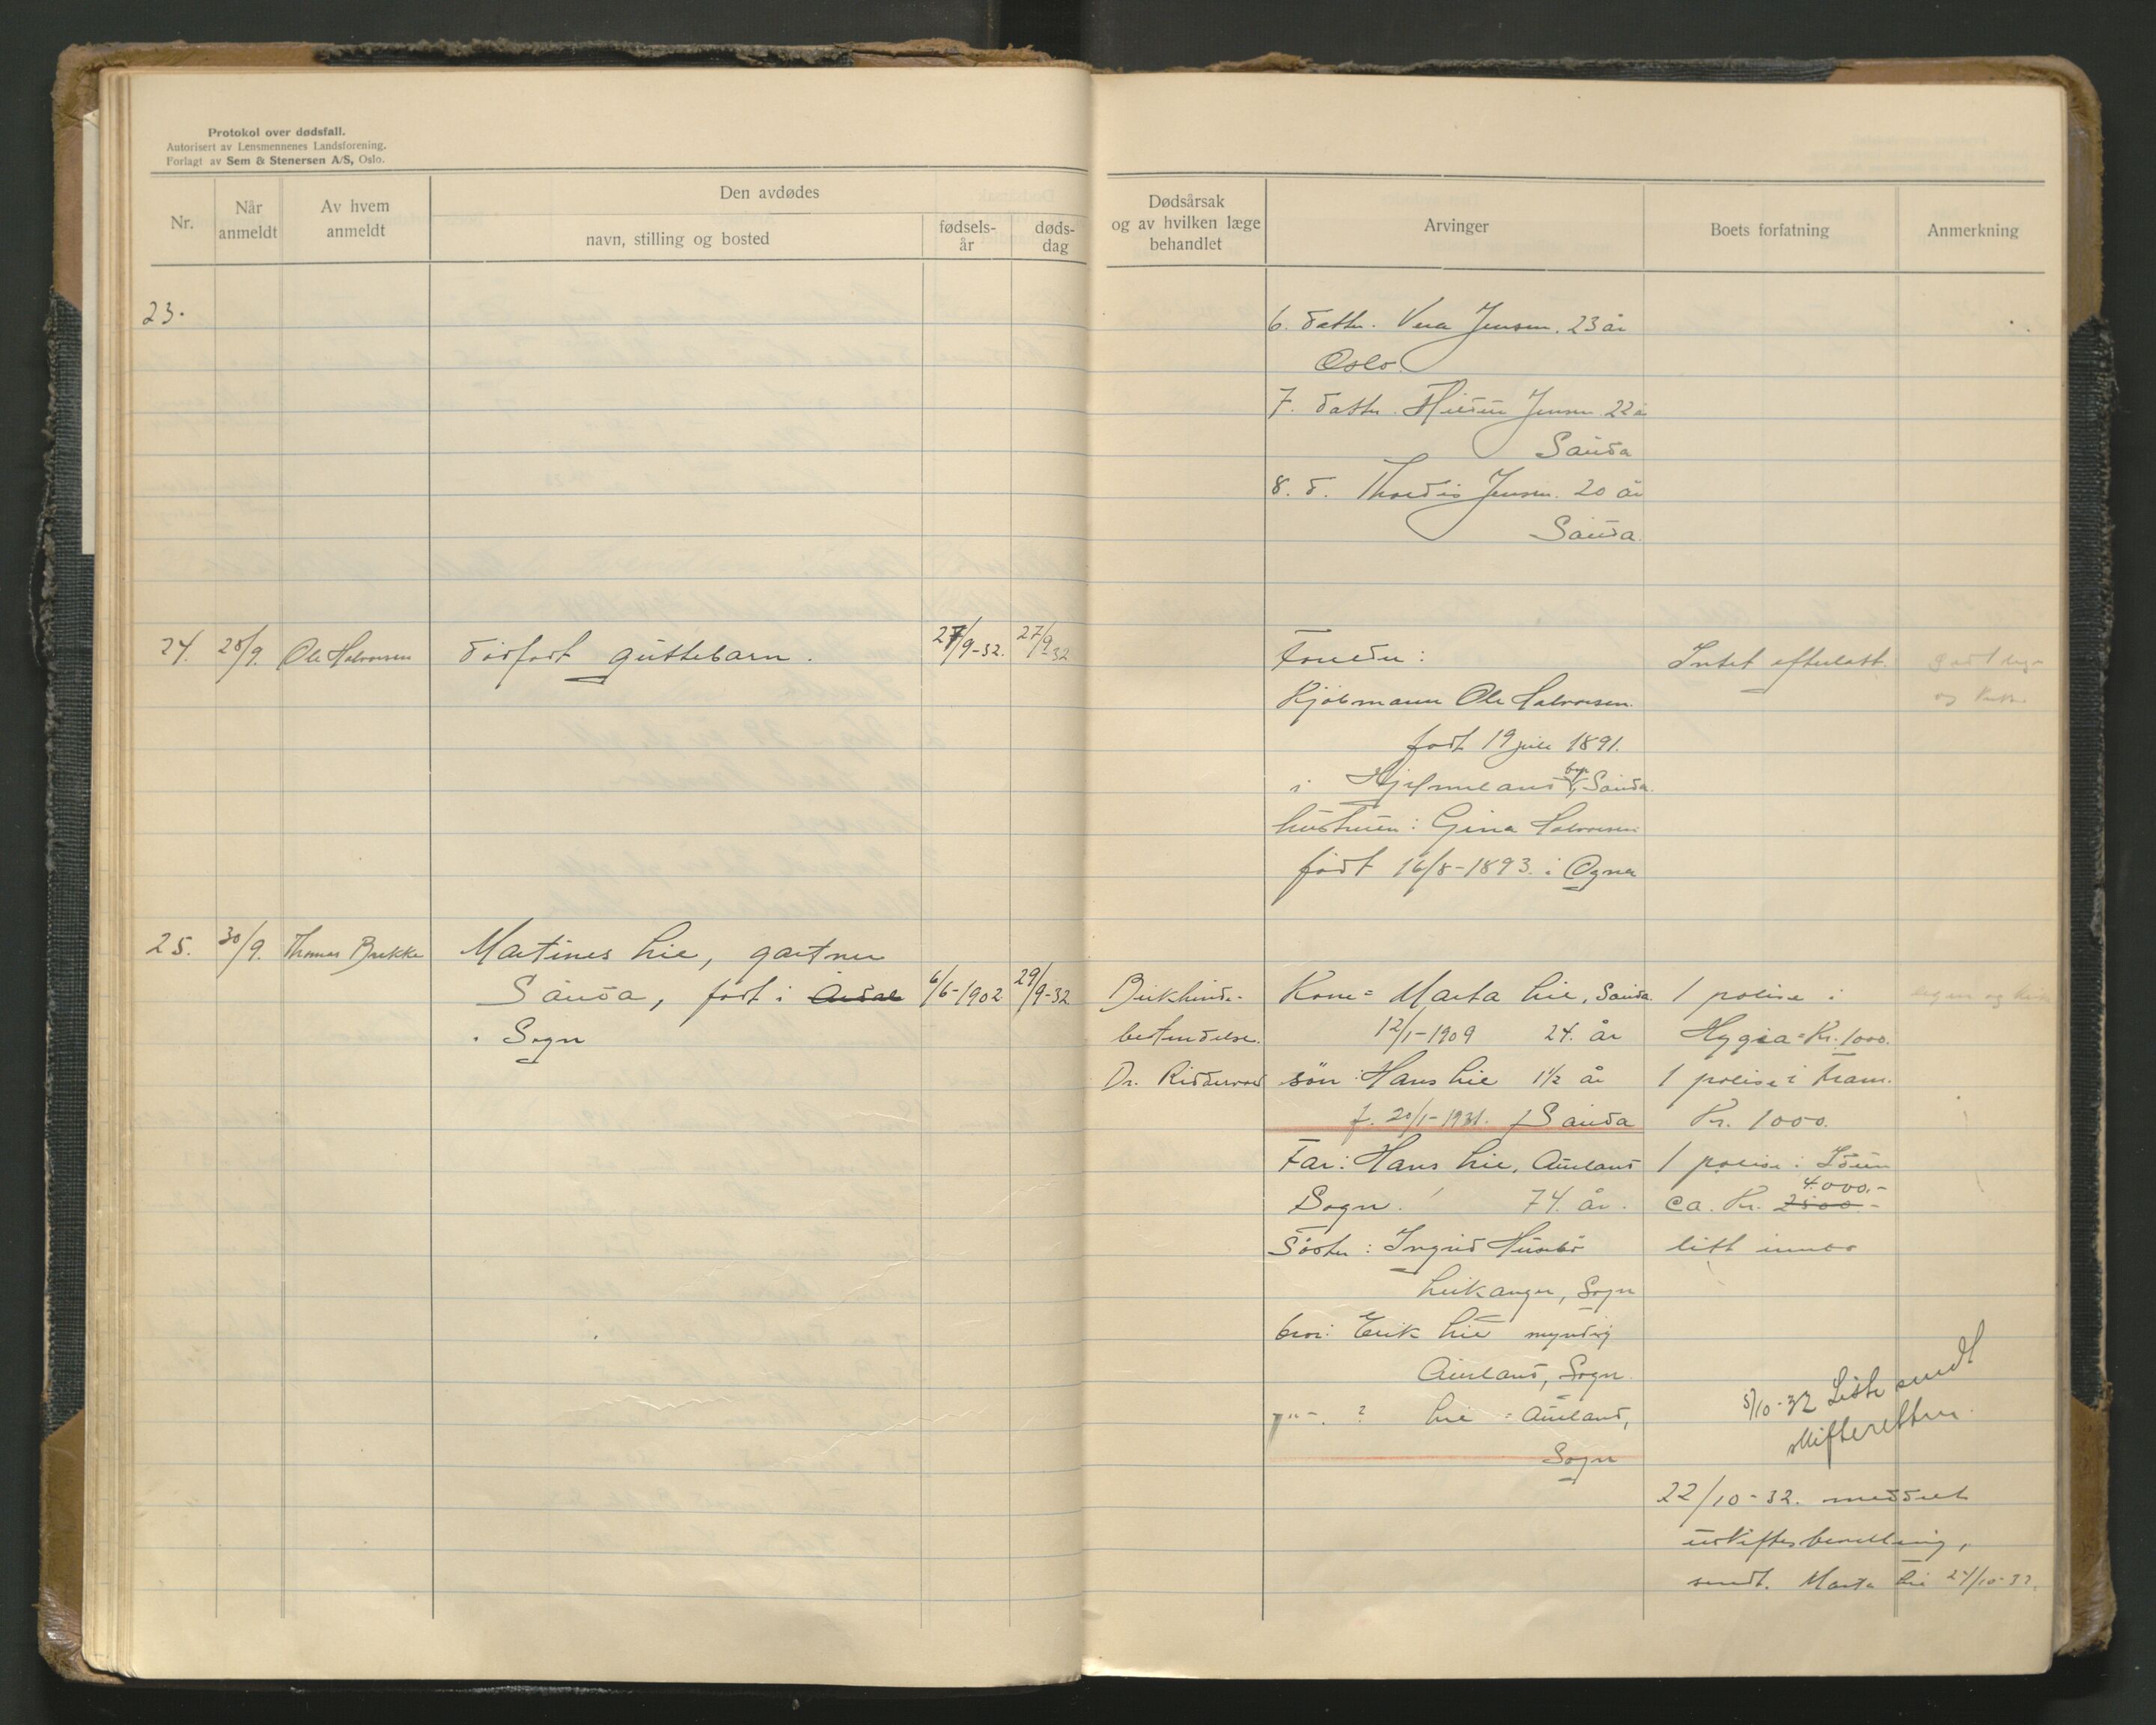 Protokol over dødsfall.
Autorisert av Lensmennenes Landsforening.
Forlagt av Sem & Stenersen A/S, Oslo.
Nr.
Når anmeldt
Av hvem anmeldt
Den avdødes
navn, stilling og bosted
fødsels-år
døds-dag
Dødsårsak
og av hvilken læge
behandlet
Arvinger
Boets forfatning
Anmerkning
23.
6. datter. Vera Jensen. 23 år
Oslo.
7. datter. Jensen 22 å
Sauda
8. d. Thordis Jensen. 20 år
Sauda.
24. 28/9. Ole Halvorsen dødfødt guttebarn. 27/9-32. 27/9-32
Foreldre:
Kjøbmann Ole Halvorsen.
født 19 juli 1891.
i Hjelmeland, Sauda.
hustruen: Gina Halvorsen
født 16/8-1893. i Ogna
Intet efterlatt.
25. 30/9. Thomas Brekke Martines Lie, gartner
Sauda, født i Årdal 6/6-1902 29/9-32
i Sogn
Bukhinde-
betendelse.
Dr. Riddervold
Kone = Marta Lie, Sauda.
12/1-1909 24. år
søn: Hans Lie 1½ år
f. 20/1-1931. f Sauda
Far: Hans Lie, Aurland
Sogn. 74. år.
Søster: Ingrid Husebø
Leikanger, Sogn
bror: Erik Lie myndig
Aurland, Sogn.
-"-. ? Lie = Aurland,
Sogn
1 polise i
Hygea = Kr. 1000.
1 polise i Fram.
Kr. 1000.
1 polise i Idun
4.000.-
ca. Kr. 2500.-
litt innbo
5/10-32 Liste sendt
skifteretten.
22/10-32. meddelt
uskiftesbevilling,
sendt. Marta Lie 24/10-32.